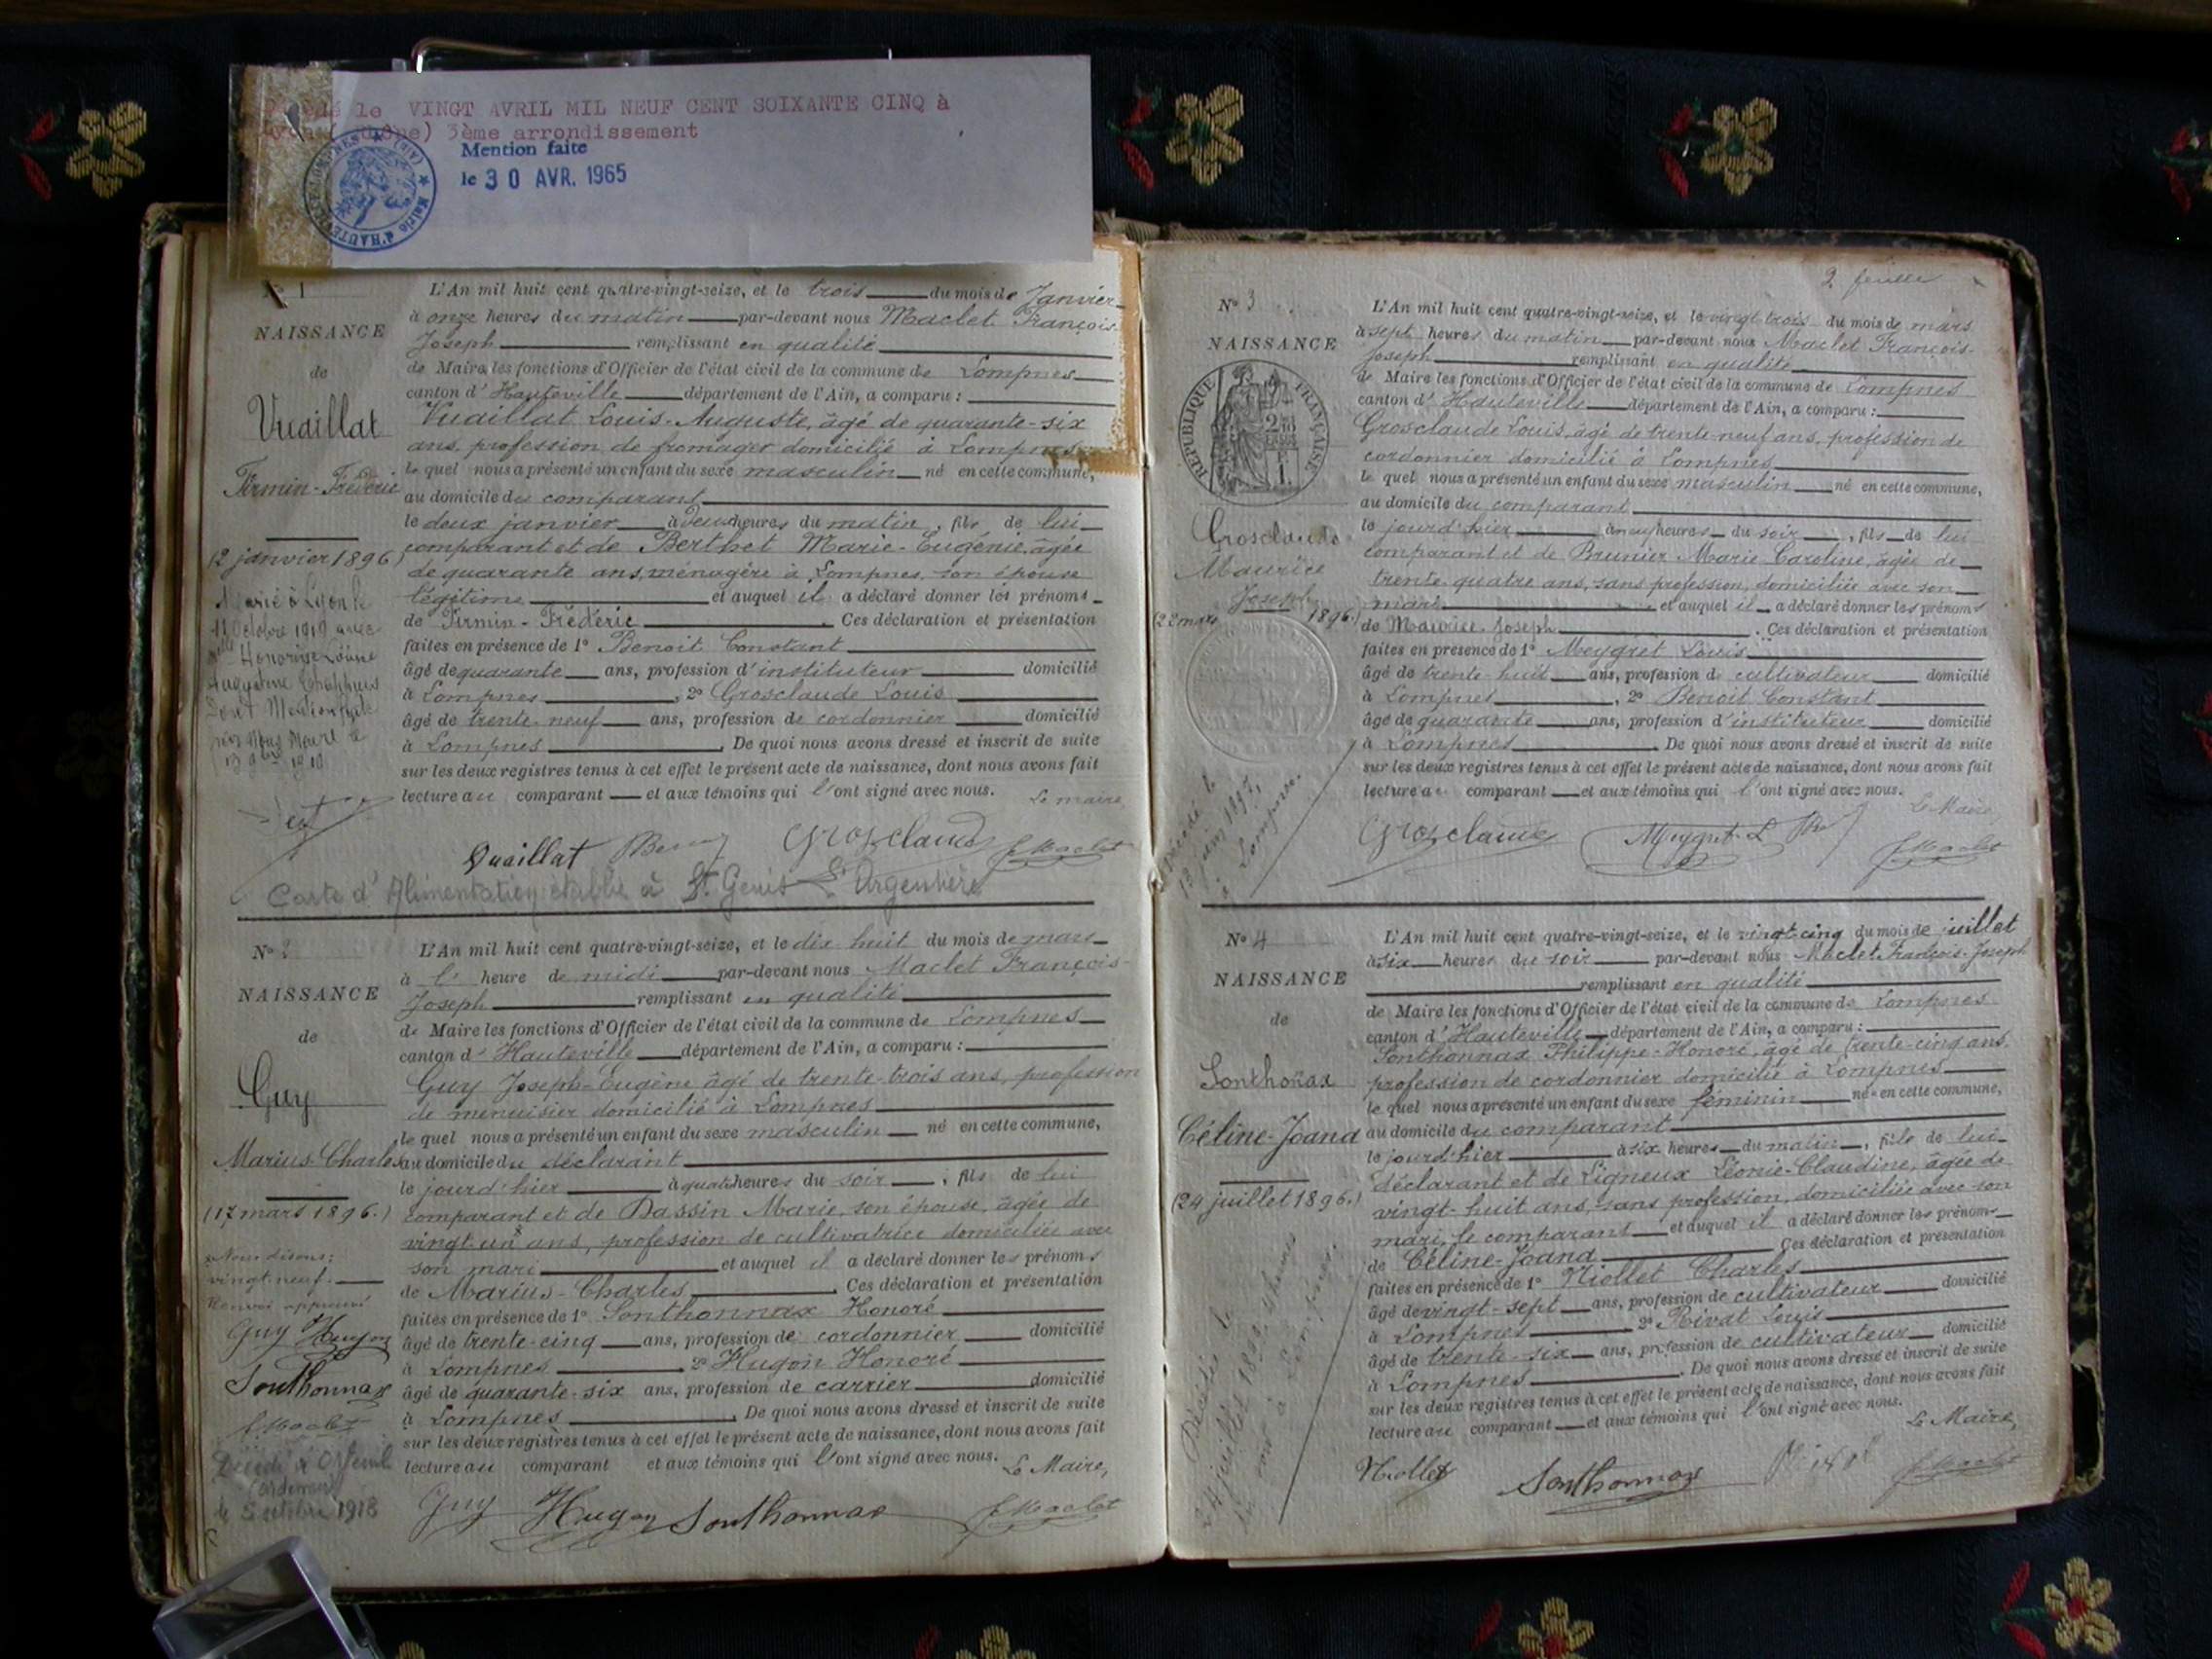 le VINGT AVRIL MIL NEUF CENT SOIXANTE CINQ à
3ème arrondissement
Mention faite
le 30 AVR. 1965
Mairie d'HAUTEVILLE-LOMPNES (AIN)
N° 1
NAISSANCE
de
Vuaillat
Firmin-Frédéric
(2 janvier 1896)
Marié à Lyon le
11 Octobre 1919 avec
Honorine
L'An mil huit cent quatre-vingt-seize, et le trois du mois de Janvier
à onze heures du matin par-devant nous Maclet François-
Joseph remplissant en qualité
de Maire les fonctions d'Officier de l'état civil de la commune de Lompnes
canton d'Hauteville département de l'Ain, a comparu :
Vuaillat Louis-Auguste, âgé de quarante-six
ans, profession de fromager domicilié à Lompnes
le quel nous a présenté un enfant du sexe masculin né en cette commune,
au domicile du comparant
le deux janvier à deux heures du matin, fils de lui
comparant et de Berthet Marie-Eugénie, âgée
de quarante ans, ménagère à Lompnes, son épouse
légitime et auquel il a déclaré donner les prénoms
de Firmin-Frédéric. Ces déclaration et présentation
faites en présence de 1° Benoit Constant
âgé de quarante ans, profession d'instituteur domicilié
à Lompnes, 2° Grosclaude Louis
âgé de trente-neuf ans, profession de cordonnier domicilié
à Lompnes. De quoi nous avons dressé et inscrit de suite
sur les deux registres tenus à cet effet le présent acte de naissance, dont nous avons fait
lecture au comparant et aux témoins qui l'ont signé avec nous.
Le maire,
Vuaillat Grosclaude F Maclet
Carte d'Alimentation établie à St Genis L'Argentière
N° 2
NAISSANCE
de
Guy
Marius-Charles
(17 mars 1896.)
Nous disons:
vingt-neuf.
Renvoi approuvé
Guy Hugon
Sonthonnax
F Maclet
Décédé à
le 5 octobre 1918
L'An mil huit cent quatre-vingt-seize, et le dix huit du mois de mars
à l' heure de midi par-devant nous Maclet François-
Joseph remplissant en qualité
de Maire les fonctions d'Officier de l'état civil de la commune de Lompnes
canton d'Hauteville département de l'Ain, a comparu :
Guy Joseph-Eugène âgé de trente-trois ans, profession
de menuisier domicilié à Lompnes
le quel nous a présenté un enfant du sexe masculin né en cette commune,
au domicile du déclarant
le jourd'hier à quatre heures du soir, fils de lui
comparant et de Dassin Marie, son épouse, âgée de
vingt-un ans, profession de cultivatrice domiciliée avec
son mari et auquel il a déclaré donner les prénoms
de Marius-Charles. Ces déclaration et présentation
faites en présence de 1° Sonthonnax Honoré
âgé de trente-cinq ans, profession de cordonnier domicilié
à Lompnes 2° Hugon Honoré
âgé de quarante-six ans, profession de carrier domicilié
à Lompnes. De quoi nous avons dressé et inscrit de suite
sur les deux registres tenus à cet effet le présent acte de naissance, dont nous avons fait
lecture au comparant et aux témoins qui l'ont signé avec nous.
Le Maire,
Guy Hugon Sonthonnax F Maclet
2 feuille
N° 3
NAISSANCE
RÉPUBLIQUE FRANÇAISE
Grosclaude
Maurice
Joseph
(22 mars 1896.)
Décédé le
12 juin 1897,
à Lompnes.
L'An mil huit cent quatre-vingt-seize, et le vingt trois du mois de mars
à sept heures du matin par-devant nous Maclet François-
Joseph remplissant en qualité
de Maire les fonctions d'Officier de l'état civil de la commune de Lompnes
canton d'Hauteville département de l'Ain, a comparu :
Grosclaude Louis, âgé de trente-neuf ans, profession de
cordonnier domicilié à Lompnes
le quel nous a présenté un enfant du sexe masculin né en cette commune,
au domicile du comparant
le jourd'hier à neuf heures du soir, fils de lui
comparant et de Brunier Marie Caroline, âgée de
trente-quatre ans, sans profession, domiciliée avec son
mari et auquel il a déclaré donner les prénoms
de Maurice-Joseph. Ces déclaration et présentation
faites en présence de 1° Meygret Louis
âgé de trente-huit ans, profession de cultivateur domicilié
à Lompnes, 2° Benoit Constant
âgé de quarante ans, profession d'instituteur domicilié
à Lompnes. De quoi nous avons dressé et inscrit de suite
sur les deux registres tenus à cet effet le présent acte de naissance, dont nous avons fait
lecture au comparant et aux témoins qui l'ont signé avec nous.
Le Maire,
Grosclaude Meygret L F Maclet
N° 4
NAISSANCE
de
Sonthonax
Céline-Joand
(24 juillet 1896.)
Décédée le
24 juillet
à Lompnes.
L'An mil huit cent quatre-vingt-seize, et le vingt-cinq du mois de juillet
à six heures du soir par-devant nous Maclet François-Joseph
remplissant en qualité
de Maire les fonctions d'Officier de l'état civil de la commune de Lompnes
canton d'Hauteville département de l'Ain, a comparu :
Sonthonnax Philippe-Honoré, âgé de trente-cinq ans,
profession de cordonnier domicilié à Lompnes
le quel nous a présenté un enfant du sexe féminin né en cette commune,
au domicile du comparant
le jourd'hier à six heures du matin, fils de lui
déclarant et de Ligneux Léonie-Claudine, âgée de
vingt-huit ans, sans profession, domiciliée avec son
mari, le comparant et auquel il a déclaré donner les prénoms
de Céline-Joand Ces déclaration et présentation
faites en présence de 1° Niollet Charles
âgé de vingt-sept ans, profession de cultivateur domicilié
à Lompnes 2° Rivat Louis
âgé de trente-six ans, profession de cultivateur domicilié
à Lompnes. De quoi nous avons dressé et inscrit de suite
sur les deux registres tenus à cet effet le présent acte de naissance, dont nous avons fait
lecture au comparant et aux témoins qui l'ont signé avec nous.
Le Maire,
Niollet Sonthonnax F Maclet